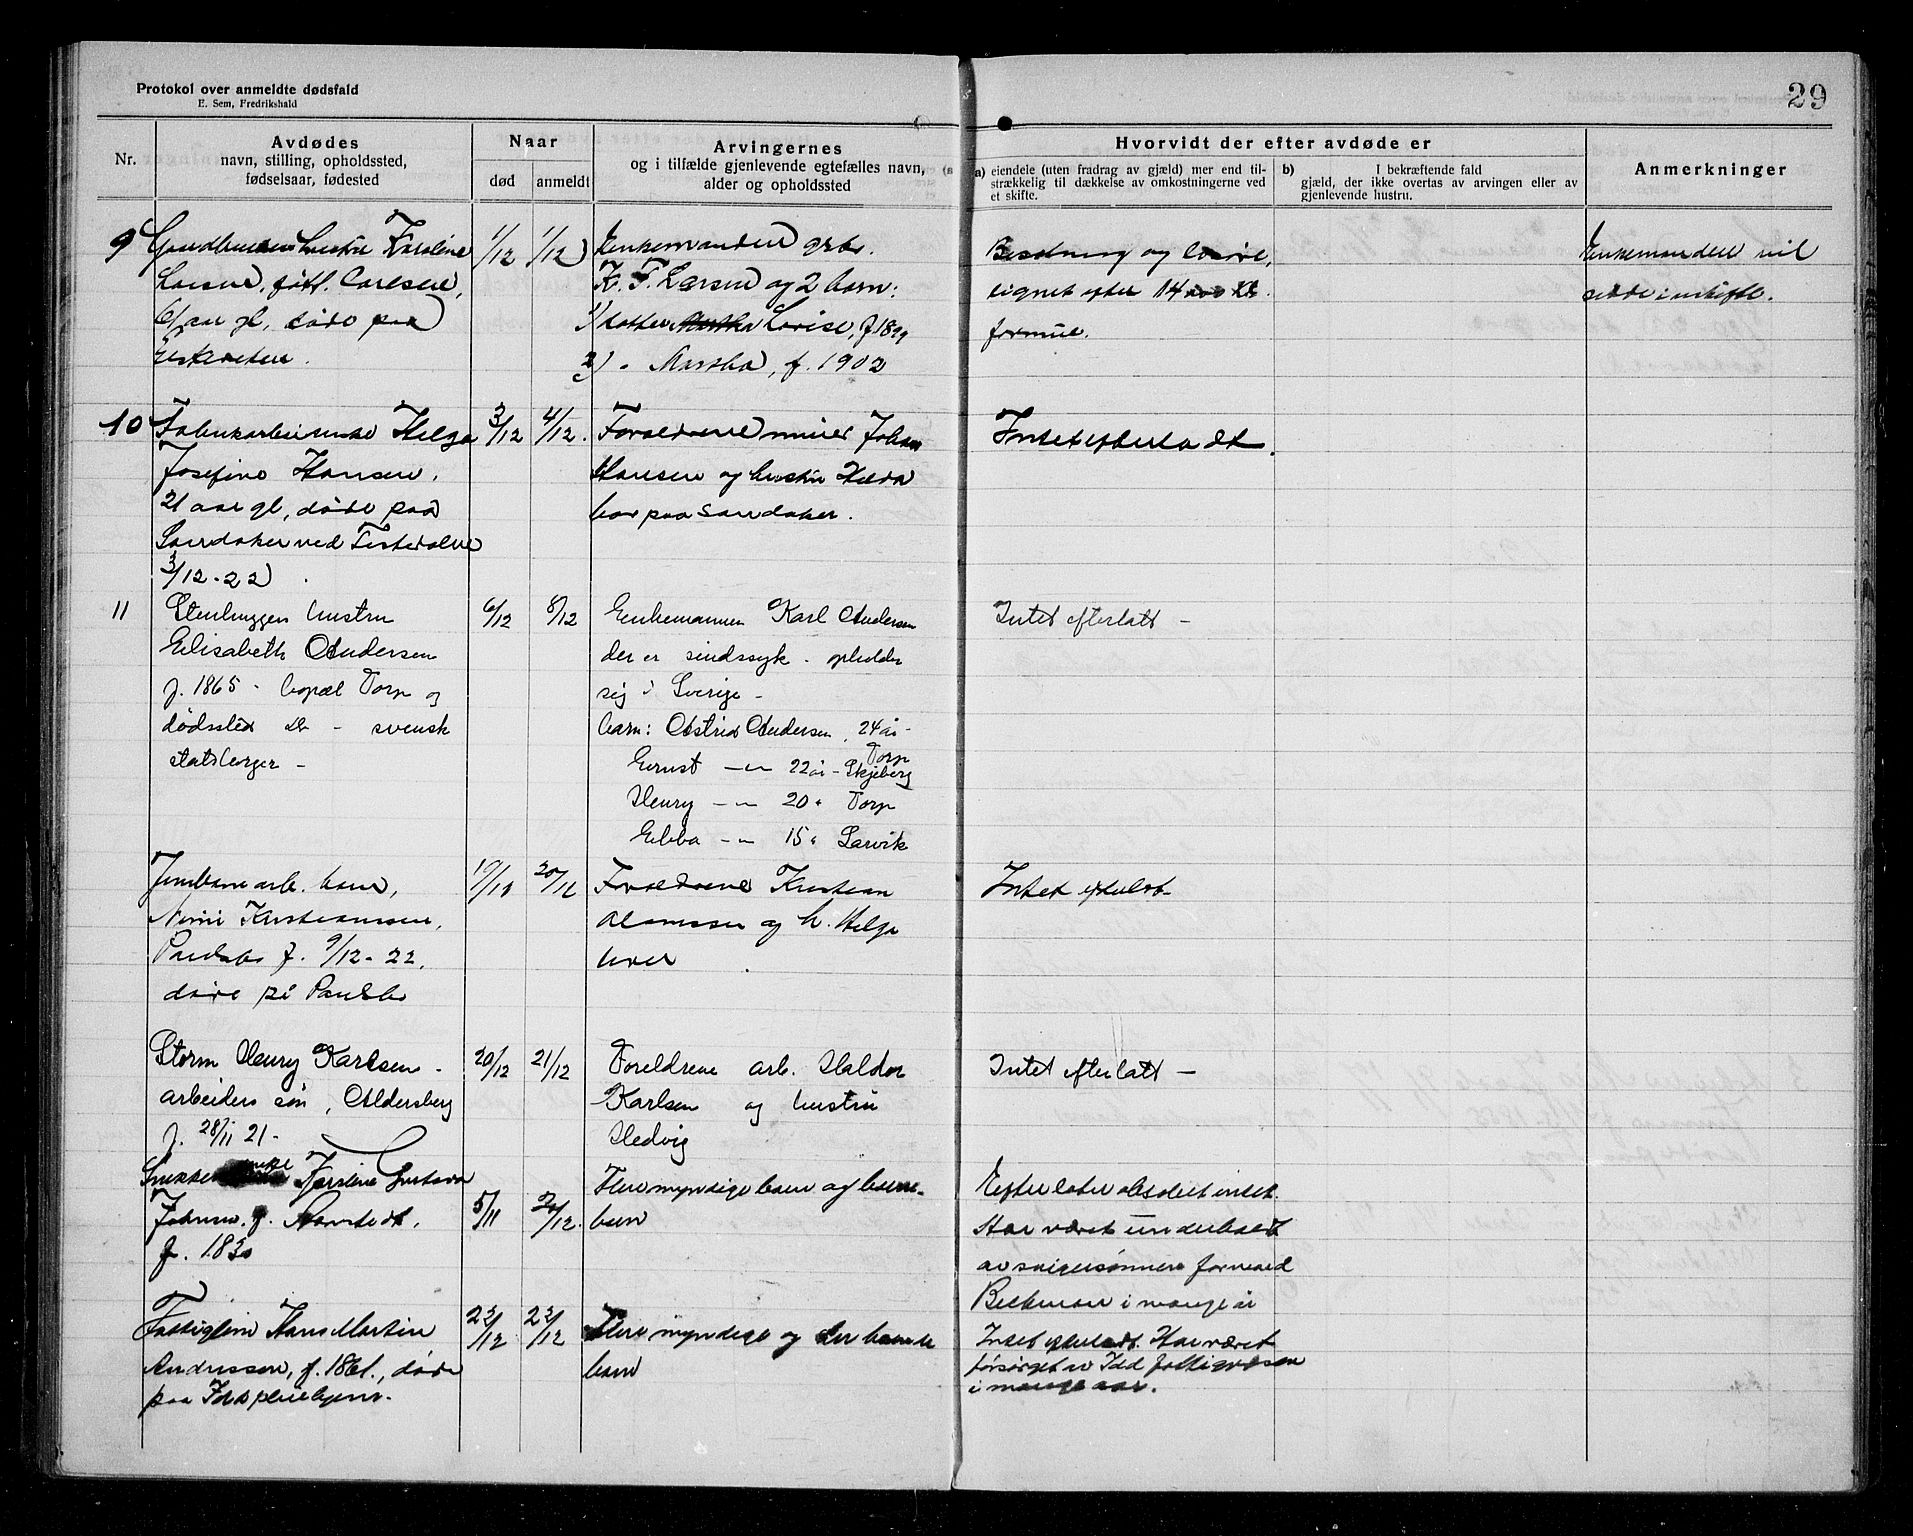 Protokol over anmeldte dødsfald
E. Sem, Fredrikshald
29
Nr.
Avdødes
navn, stilling, opholdssted,
fødselsaar, fødested
Naar
død
anmeldt
Arvingernes
og i tilfælde gjenlevende egtefælles navn,
alder og opholdssted
Hvorvidt der efter avdøde er
a) eiendele (uten fradrag av gjæld) mer end til-
strækkelig til dækkelse av omkostningerne ved
et skifte.
b) I bekræftende fald
gjæld, der ikke overtas av arvingen eller av
gjenlevende hustru.
Anmerkninger
9
hustru Karoline
Larsen, født Carlsen,
61 aar gl, døde paa
1/12
1/12
Enkemanden grbr.
K. F. Larsen og 2 barn:
1) datter Martha Lovise, f. 1899
2) - Martha, f. 1902
Besætning og løsøre,
lignet efter
formue.
Enkemanden vil
sidde i uskifte.
10
Fabrikarbeiderske Helga
Josefine Hansen,
21 aar gl, døde paa
Sandaker ved Tistedalen
3/12-22
3/12
4/12.
Forældrene murer Johan
Hansen og hustru
bor paa Sandaker.
Intet efterladt.
11
Stenhuggers hustru
Elisabeth Andersen
f. 1865 - bopæl Torp og
dødssted Do - svensk
statsborger -
6/12
8/12
Enkemannen Karl Andersen
der er sindssyk - opholder
sig i Sverige -
barn: Astrid Andersen, 24 år -
Torp
Ernst - " 22 år - Skjeberg
Henry - " 20 " Torp
Ebba - " 15 " Larvik
Intet efterlatt -
Jernbanearb. barn,
Kristianssen,
f. 9/12-22,
døde på
20/12
Forældrene Kristian
og h. Helga
lever
Intet efterlat-
Storm Henry Karlsen -
arbeiders søn, Aldersberg
f. 28/11 21-
20/12
21/12
Foreldrene arb. Haldor
Karlsen og hustru
Hedvig
Intet efterlatt -
enke Gustava
Johnsen, f.
f. 1830
5/11
Flere myndige barn og barne-
barn
Efterlater absolut intet.
Har været underholdt
av svigersønnen formand
Beckman i mange år
Fattiglem Hans Martin
Andressen, f. 1861, døde
paa Idd pleiehjem.
22/12
22/12
Flere myndige og
barn
Intet efterladt. Har været
forsørget av Idd fattigvæsen
i mange aar.